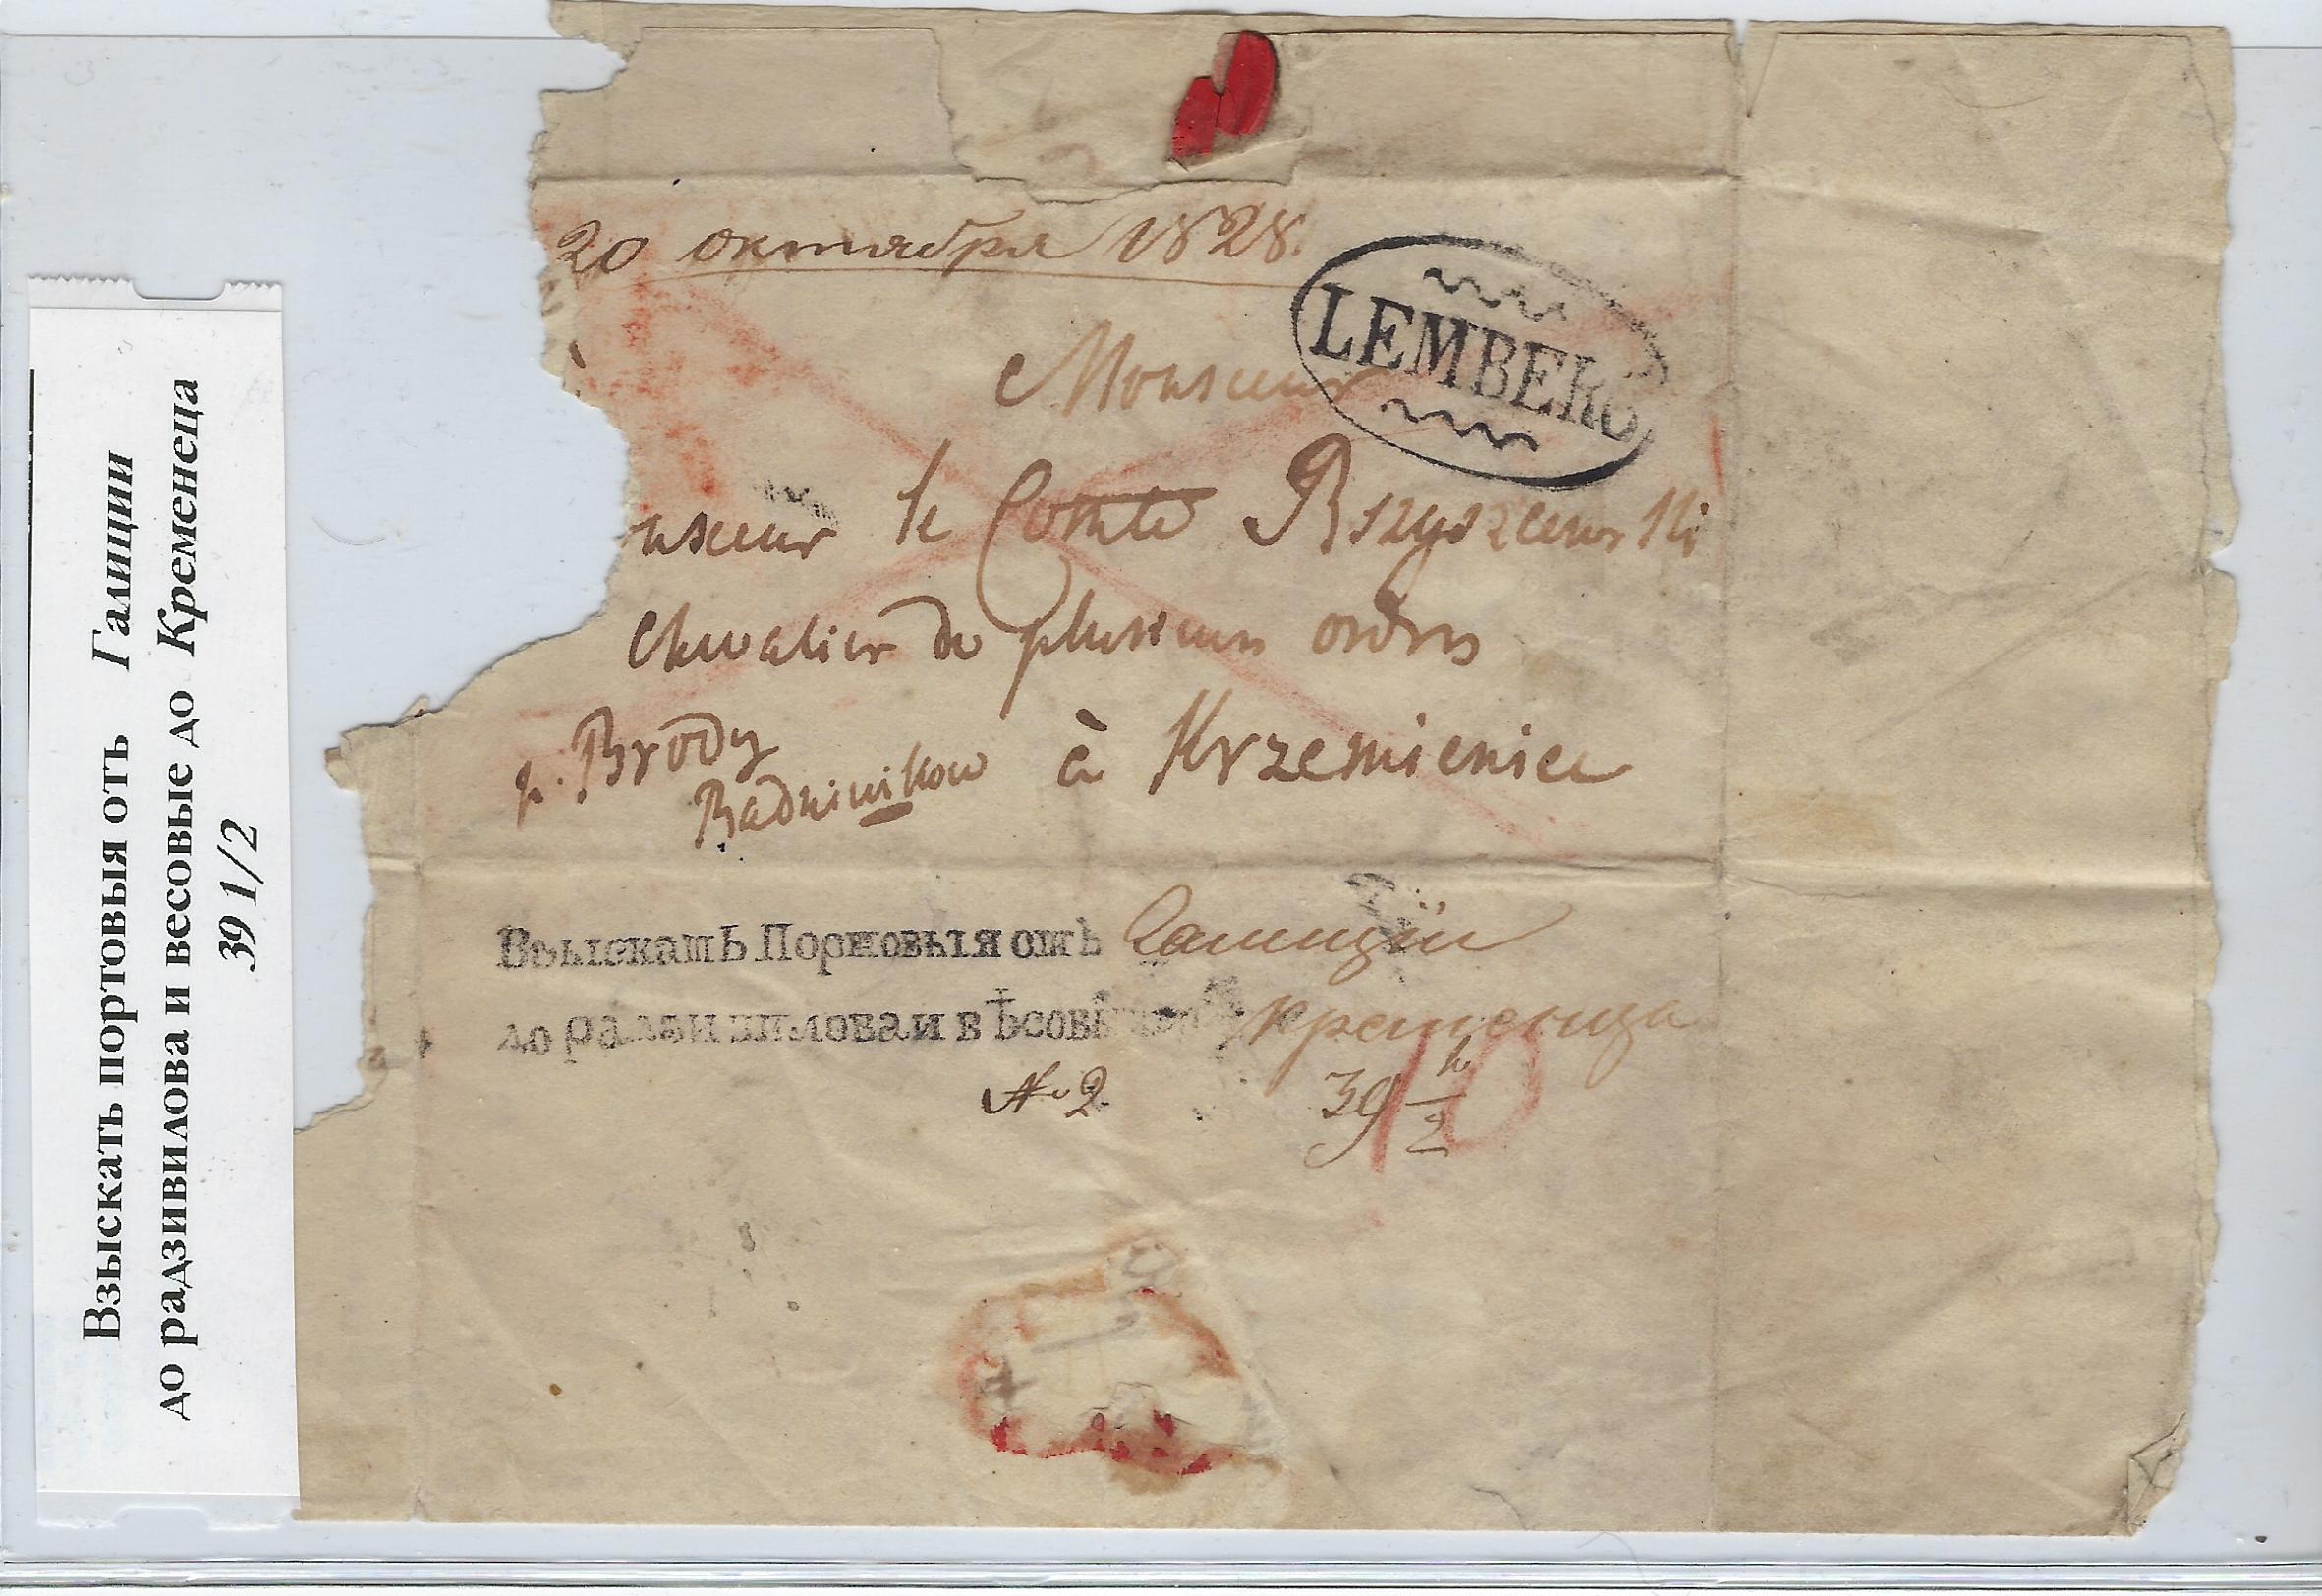 Взыскать портовыя отъ Галиции
до радзивилова и весовые до Кременеца
39 1/2
20 октября 1828.
LEMBERG
Monsieur
nsieur le Comte Rszyszewski
Chevalier de plusieurs ordres
p. Brody
à Krzemieniec
Взыскать Портовыя отъ Галиціи
до радзивилова и вѣсовы Кременца
№ 2.
39 1/2
10